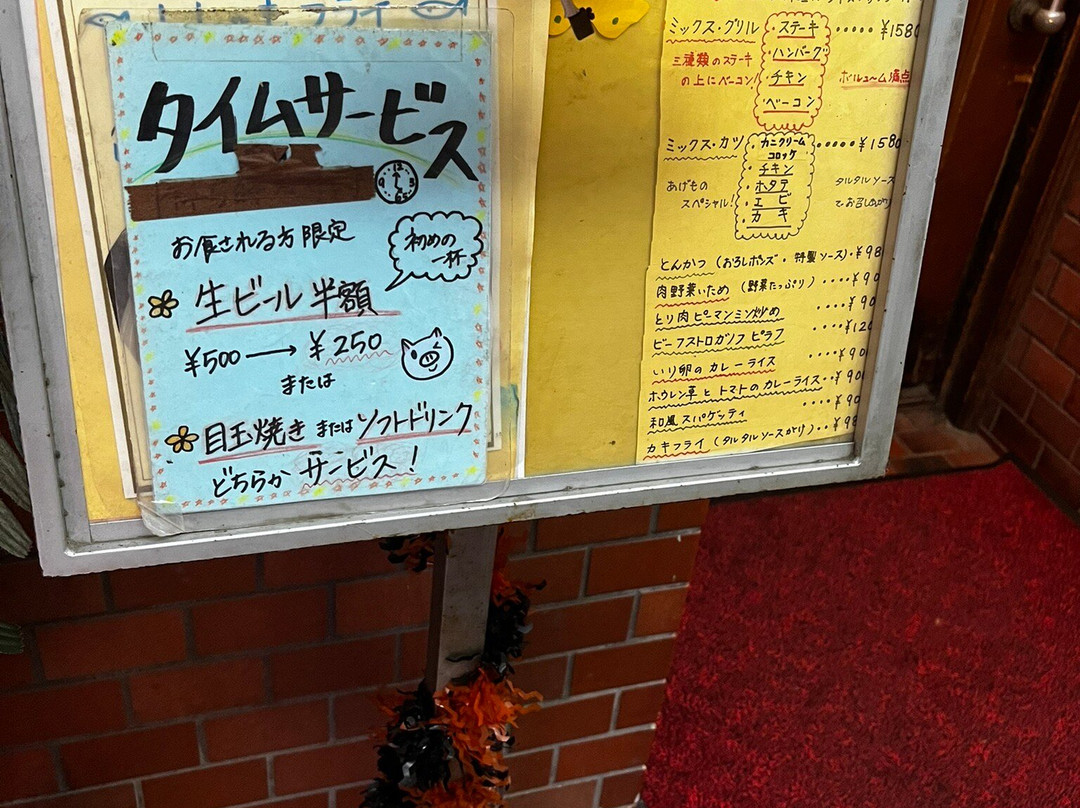 タイムサービス
お食される方限定
初めの
一杯
生ビール半額
¥500→¥250
または
目玉焼きまたはソフトドリンク
どちらかサービス!
ミックス・グリル
・ステーキ ・・・・・ ¥1580
・ハンバーグ
・チキン
・ベーコン
三種類のステーキ
の上にベーコン!
ボリューム満点
ミックス・カツ
・カニクリーム
コロッケ ・・・・・ ¥1580
・チキン
・ホタテ
・エビ
・カキ
あげもの
スペシャル!
タルタルソース
でお召しあがり
とんかつ(おろしポンズ・特製ソース)・¥98
肉野菜いため(野菜たっぷり)・・・・¥90
とり肉ピーマンミン炒め ・・・・¥90
ビーフストロガノフピラフ ・・・・¥120
いり卵のカレーライス ・・・・¥90
ホウレン草とトマトのカレーライス・・¥90
和風スパゲッティ ・・・・¥90
カキフライ(タルタルソースがけ)・・¥98